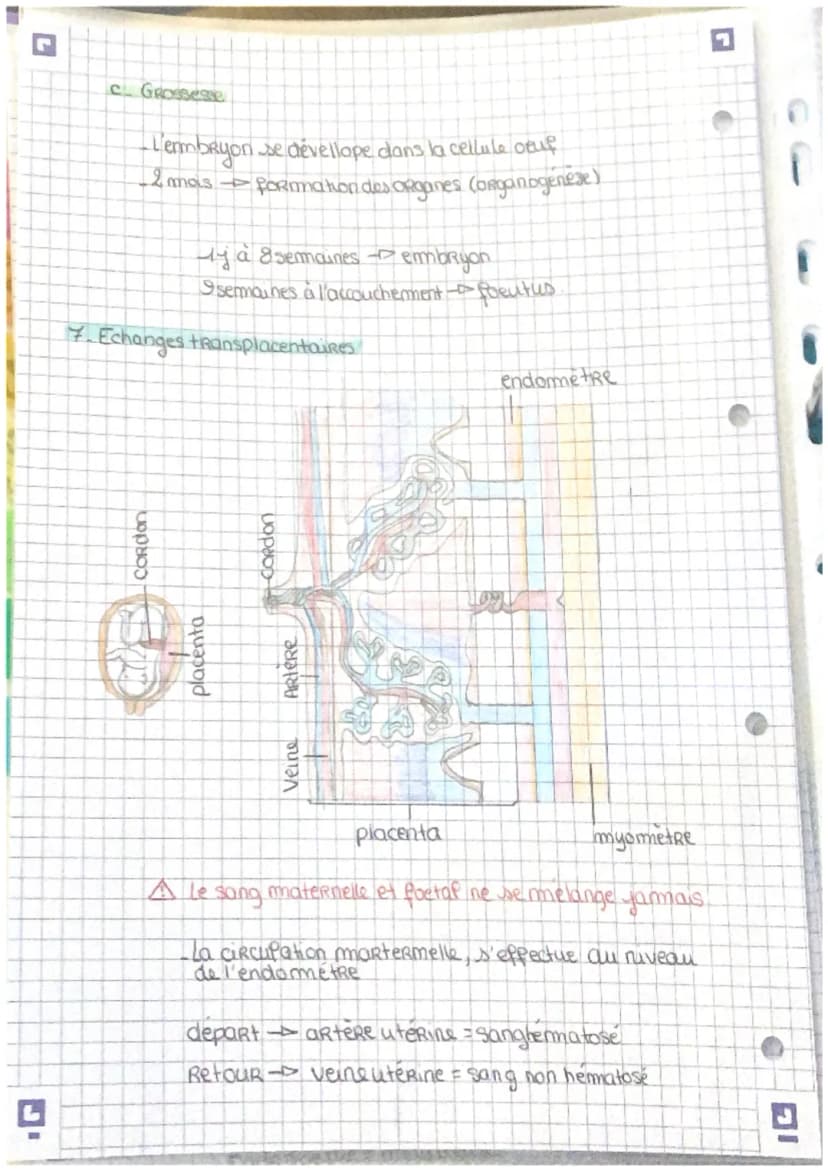 c. Grossesse
- L'embryon se dévellope dans la cellule oeuf
- 2 mois → formation des organes (organogénèse)
1j à 8 semaines → embryon
9 semaines à l'accouchement → foeutus
7. Echanges transplacentaires
endomètre
cordon
placenta
cordon
Artère
Veine
placenta
myomètre
⚠ Le sang maternelle et foetal ne se mélange jamais
- La circulation martermelle, s'effectue au niveau
de l'endomètre
départ → artère utérine = sang hématosé
Retour → veine utérine = sang non hématosé